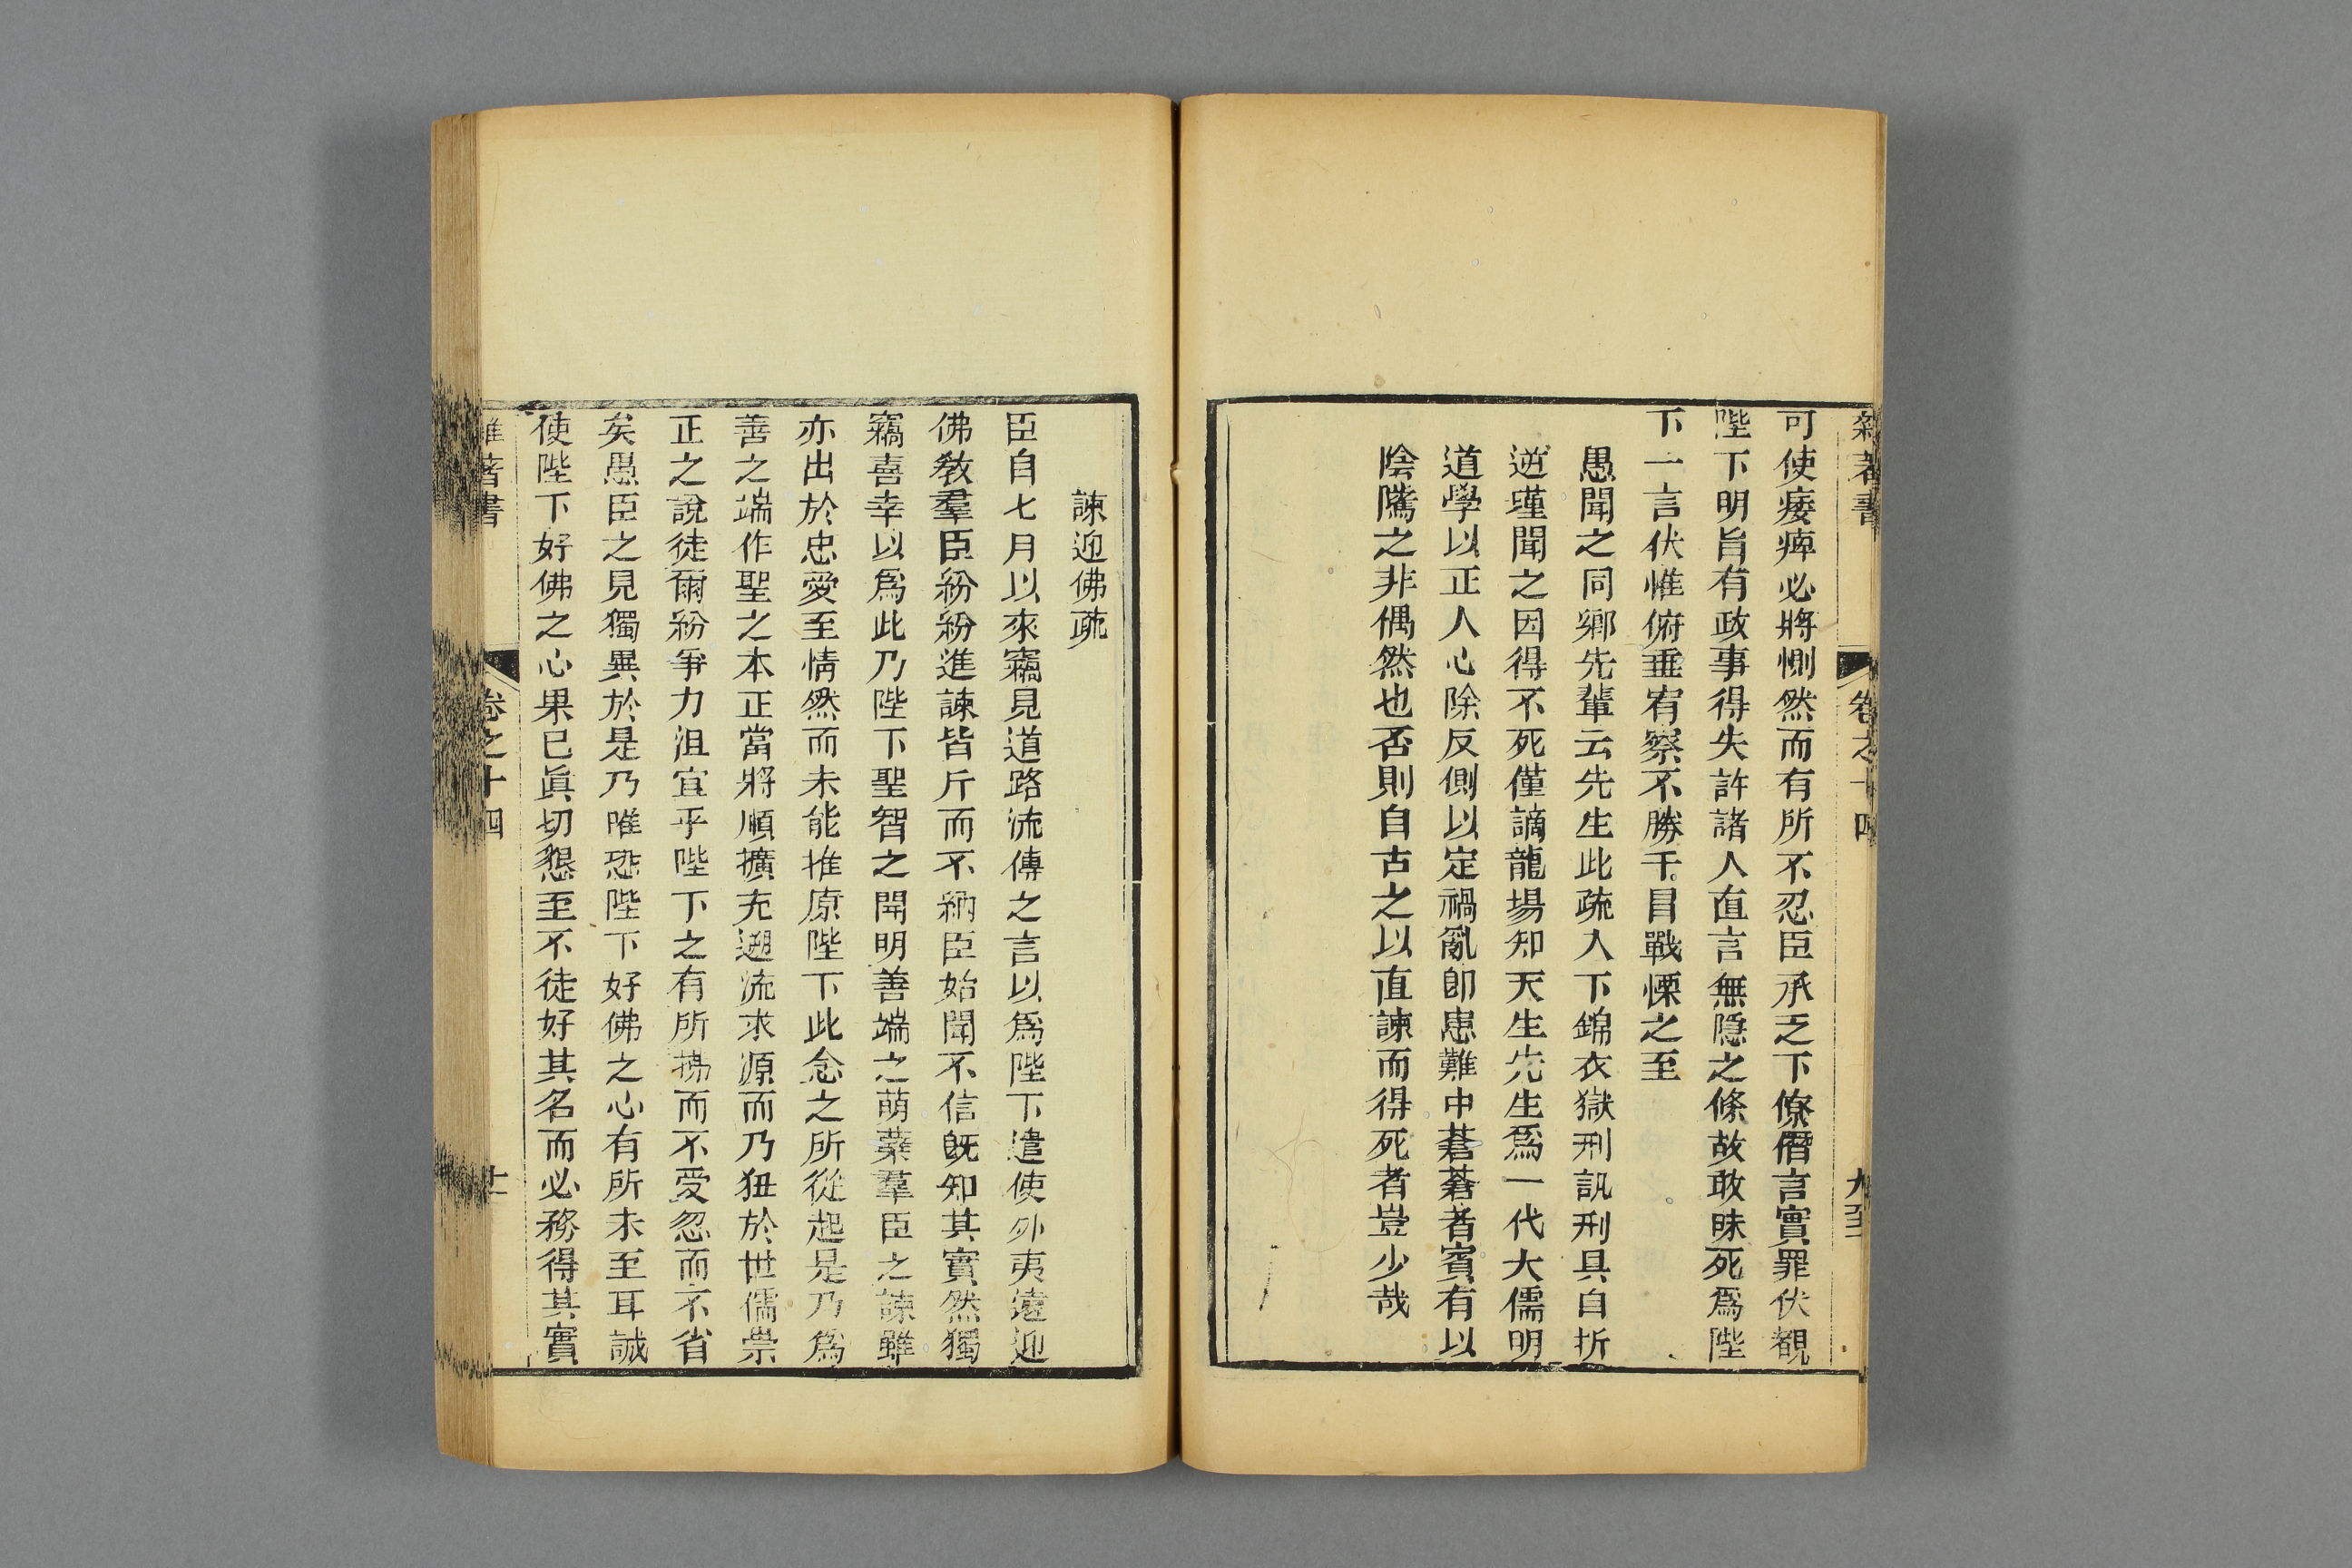 雜著書 卷之十四 九至
可使痿痺必將惻然而有所不忍臣承乏下僚僭言實罪伏覩
陛下明旨有政事得失許諸人直言無隱之條故敢昧死爲陛
下一言伏惟俯垂宥察不勝干冒戰慄之至
愚聞之同鄉先輩云先生此疏入下錦衣獄刑訊刑具自折
逆瑾聞之因得不死僅謫龍場知天生先生爲一代大儒明
道學以正人心除反側以定禍亂卽患難中蒼蒼者賓有以
陰隲之非偶然也否則自古之以直諫而得死者豈少哉
諫迎佛疏
臣自七月以來竊見道路流傳之言以爲陛下遣使外夷遠迎
佛敎羣臣紛紛進諫皆斥而不納臣始聞不信旣知其實然獨
竊喜幸以爲此乃陛下聖智之開明善端之萌蘖羣臣之諫雖
亦出於忠愛至情然而未能推原陛下此念之所從起是乃爲
善之端作聖之本正當將順擴充遡流求源而乃狃於世儒崇
正之說徒爾紛爭力沮宜乎陛下之有所拂而不受忽而不省
矣愚臣之見獨異於是乃唯恐陛下好佛之心有所未至耳誠
使陛下好佛之心果已眞切懇至不徒好其名而必務得其實
雜著書 卷之十四